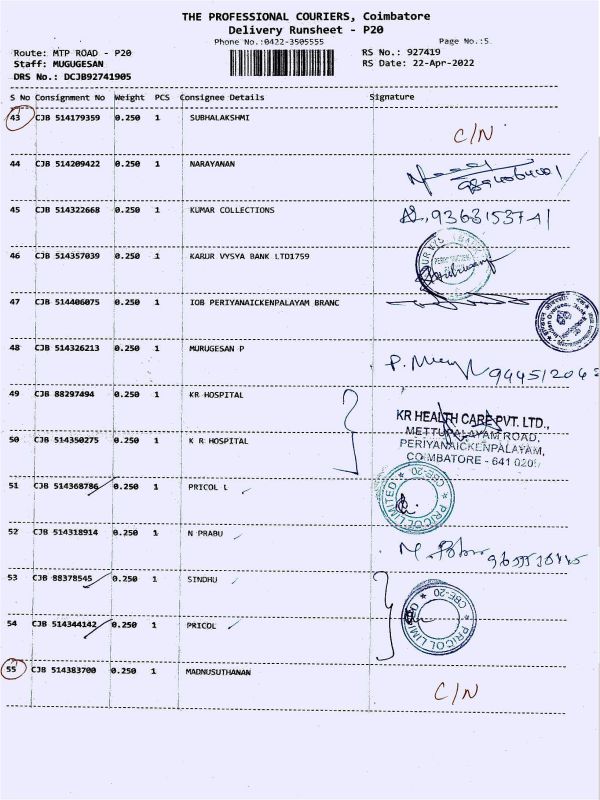 THE PROFESSIONAL COURIERS, Coimbatore
Delivery Runsheet - P20
Phone No.:0422-3505555 Page No.:5
Route: MTP ROAD - P20 RS No.: 927419
Staff: MUGUGESAN RS Date: 22-Apr-2022
DRS No.: DCJB92741905
S No Consignment No Weight PCS Consignee Details Signature
43 CJB 514179359 0.250 1 SUBHALAKSHMI
C/N
44 CJB 514209422 0.250 1 NARAYANAN
45 CJB 514322668 0.250 1 KUMAR COLLECTIONS
9363153741
46 CJB 514357039 0.250 1 KARUR VYSYA BANK LTD1759
47 CJB 514406075 0.250 1 IOB PERIYANAICKENPALAYAM BRANC
48 CJB 514326213 0.250 1 MURUGESAN P
49 CJB 88297494 0.250 1 KR HOSPITAL
KR HEALTH CARE PVT. LTD.,
METTUPALAYAM ROAD,
50 CJB 514350275 0.250 1 K R HOSPITAL
PERIYANAICKENPALAYAM,
COIMBATORE - 641 020
51 CJB 514368786 0.250 1 PRICOL L
PRICOL LIMITED ★ CBE-20 ★
52 CJB 514318914 0.250 1 N PRABU
53 CJB 88378545 0.250 1 SINDHU
54 CJB 514344142 0.250 1 PRICOL
PRICOL LIMITED ★ CBE-20 ★
55 CJB 514383700 0.250 1 MADNUSUTHANAN
C/N